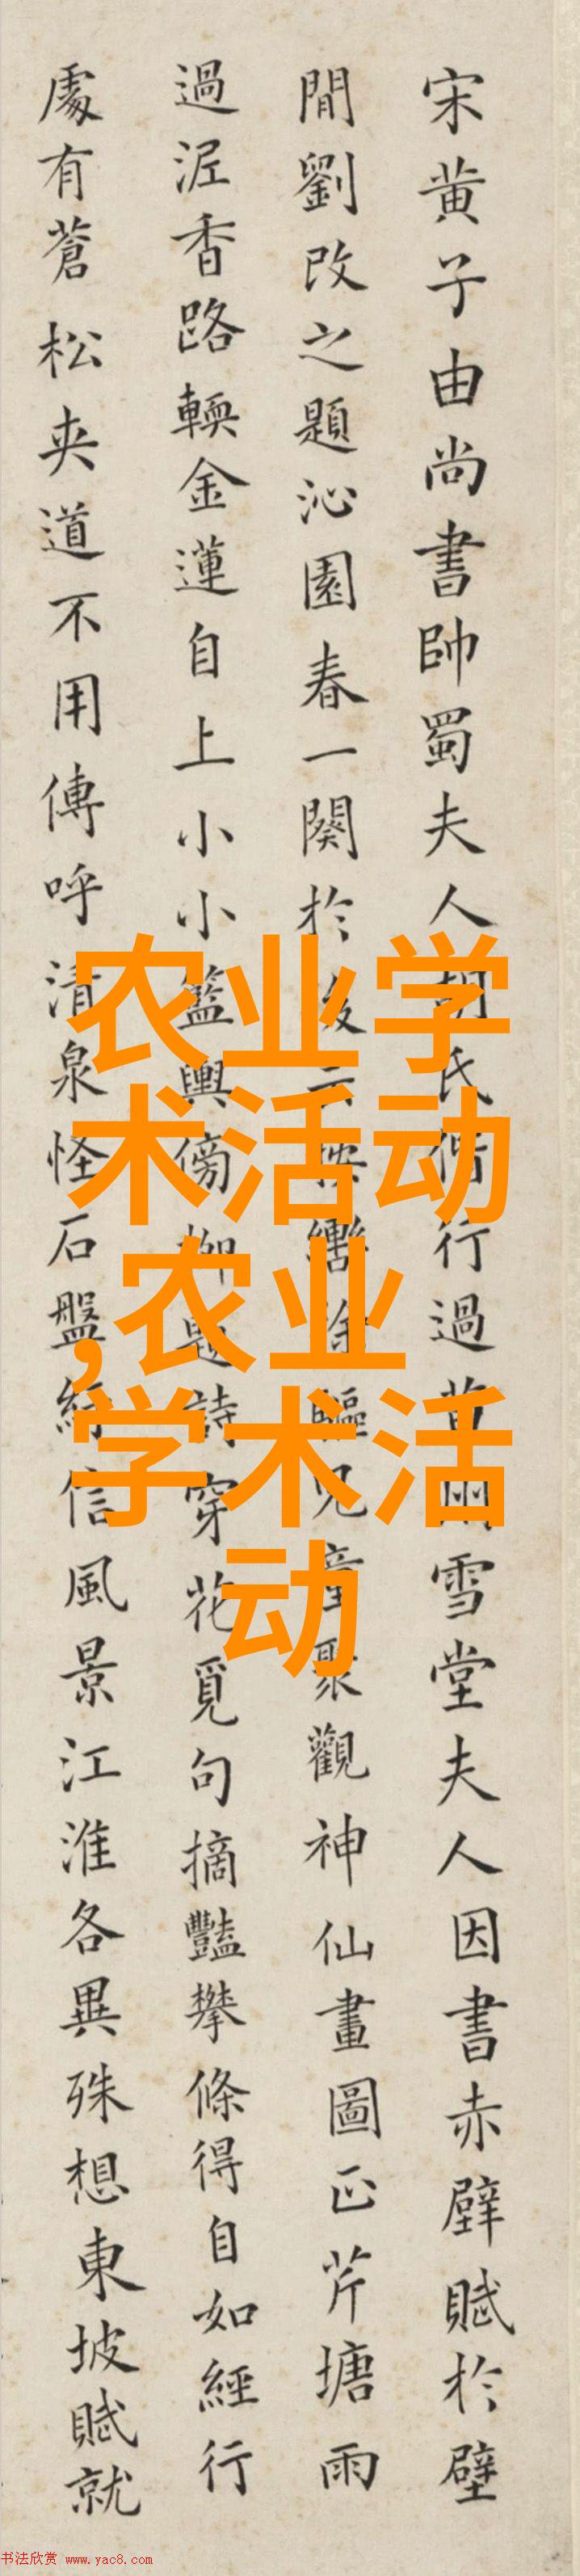 宋黄子由尚書帥蜀夫人胡氏偕行過黄州雪堂夫人因書赤壁賦於壁
間劉改之題沁園春一闋於後云按轡徐驅兒童聚觀神仙畫圖正芹塘雨
過泥香路輭金蓮自上小小籃輿傍柳題詩穿花覓句摘豔攀條得自如經行
處有蒼松夾道不用傳呼清泉怪石盤紆信風景江淮各異殊想東坡賦就
农业学
术活动
,农业
学术活
动
书法欣赏 www.yac8.com